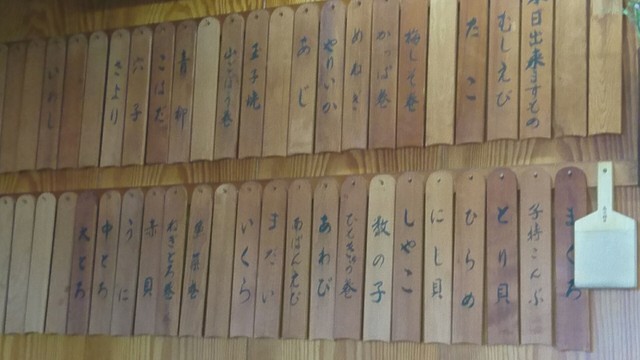 本日出来ますもの
むしえび
たこ
梅しそ巻
かっぱ巻
めねぎ
やりいか
あじ
玉子焼
山ごぼう巻
青柳
こはだ
穴子
さより
いわし
まぐろ
子持こんぶ
とり貝
ひらめ
にし貝
しゃこ
数の子
ひもきゅう巻
あわび
あばんえび
まだい
いくら
ねぎとろ巻
赤貝
うに
中とろ
大とろ